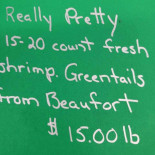 Really Pretty
15-20 count fresh
shrimp. Greentails
from Beaufort
$ 15.00 lb